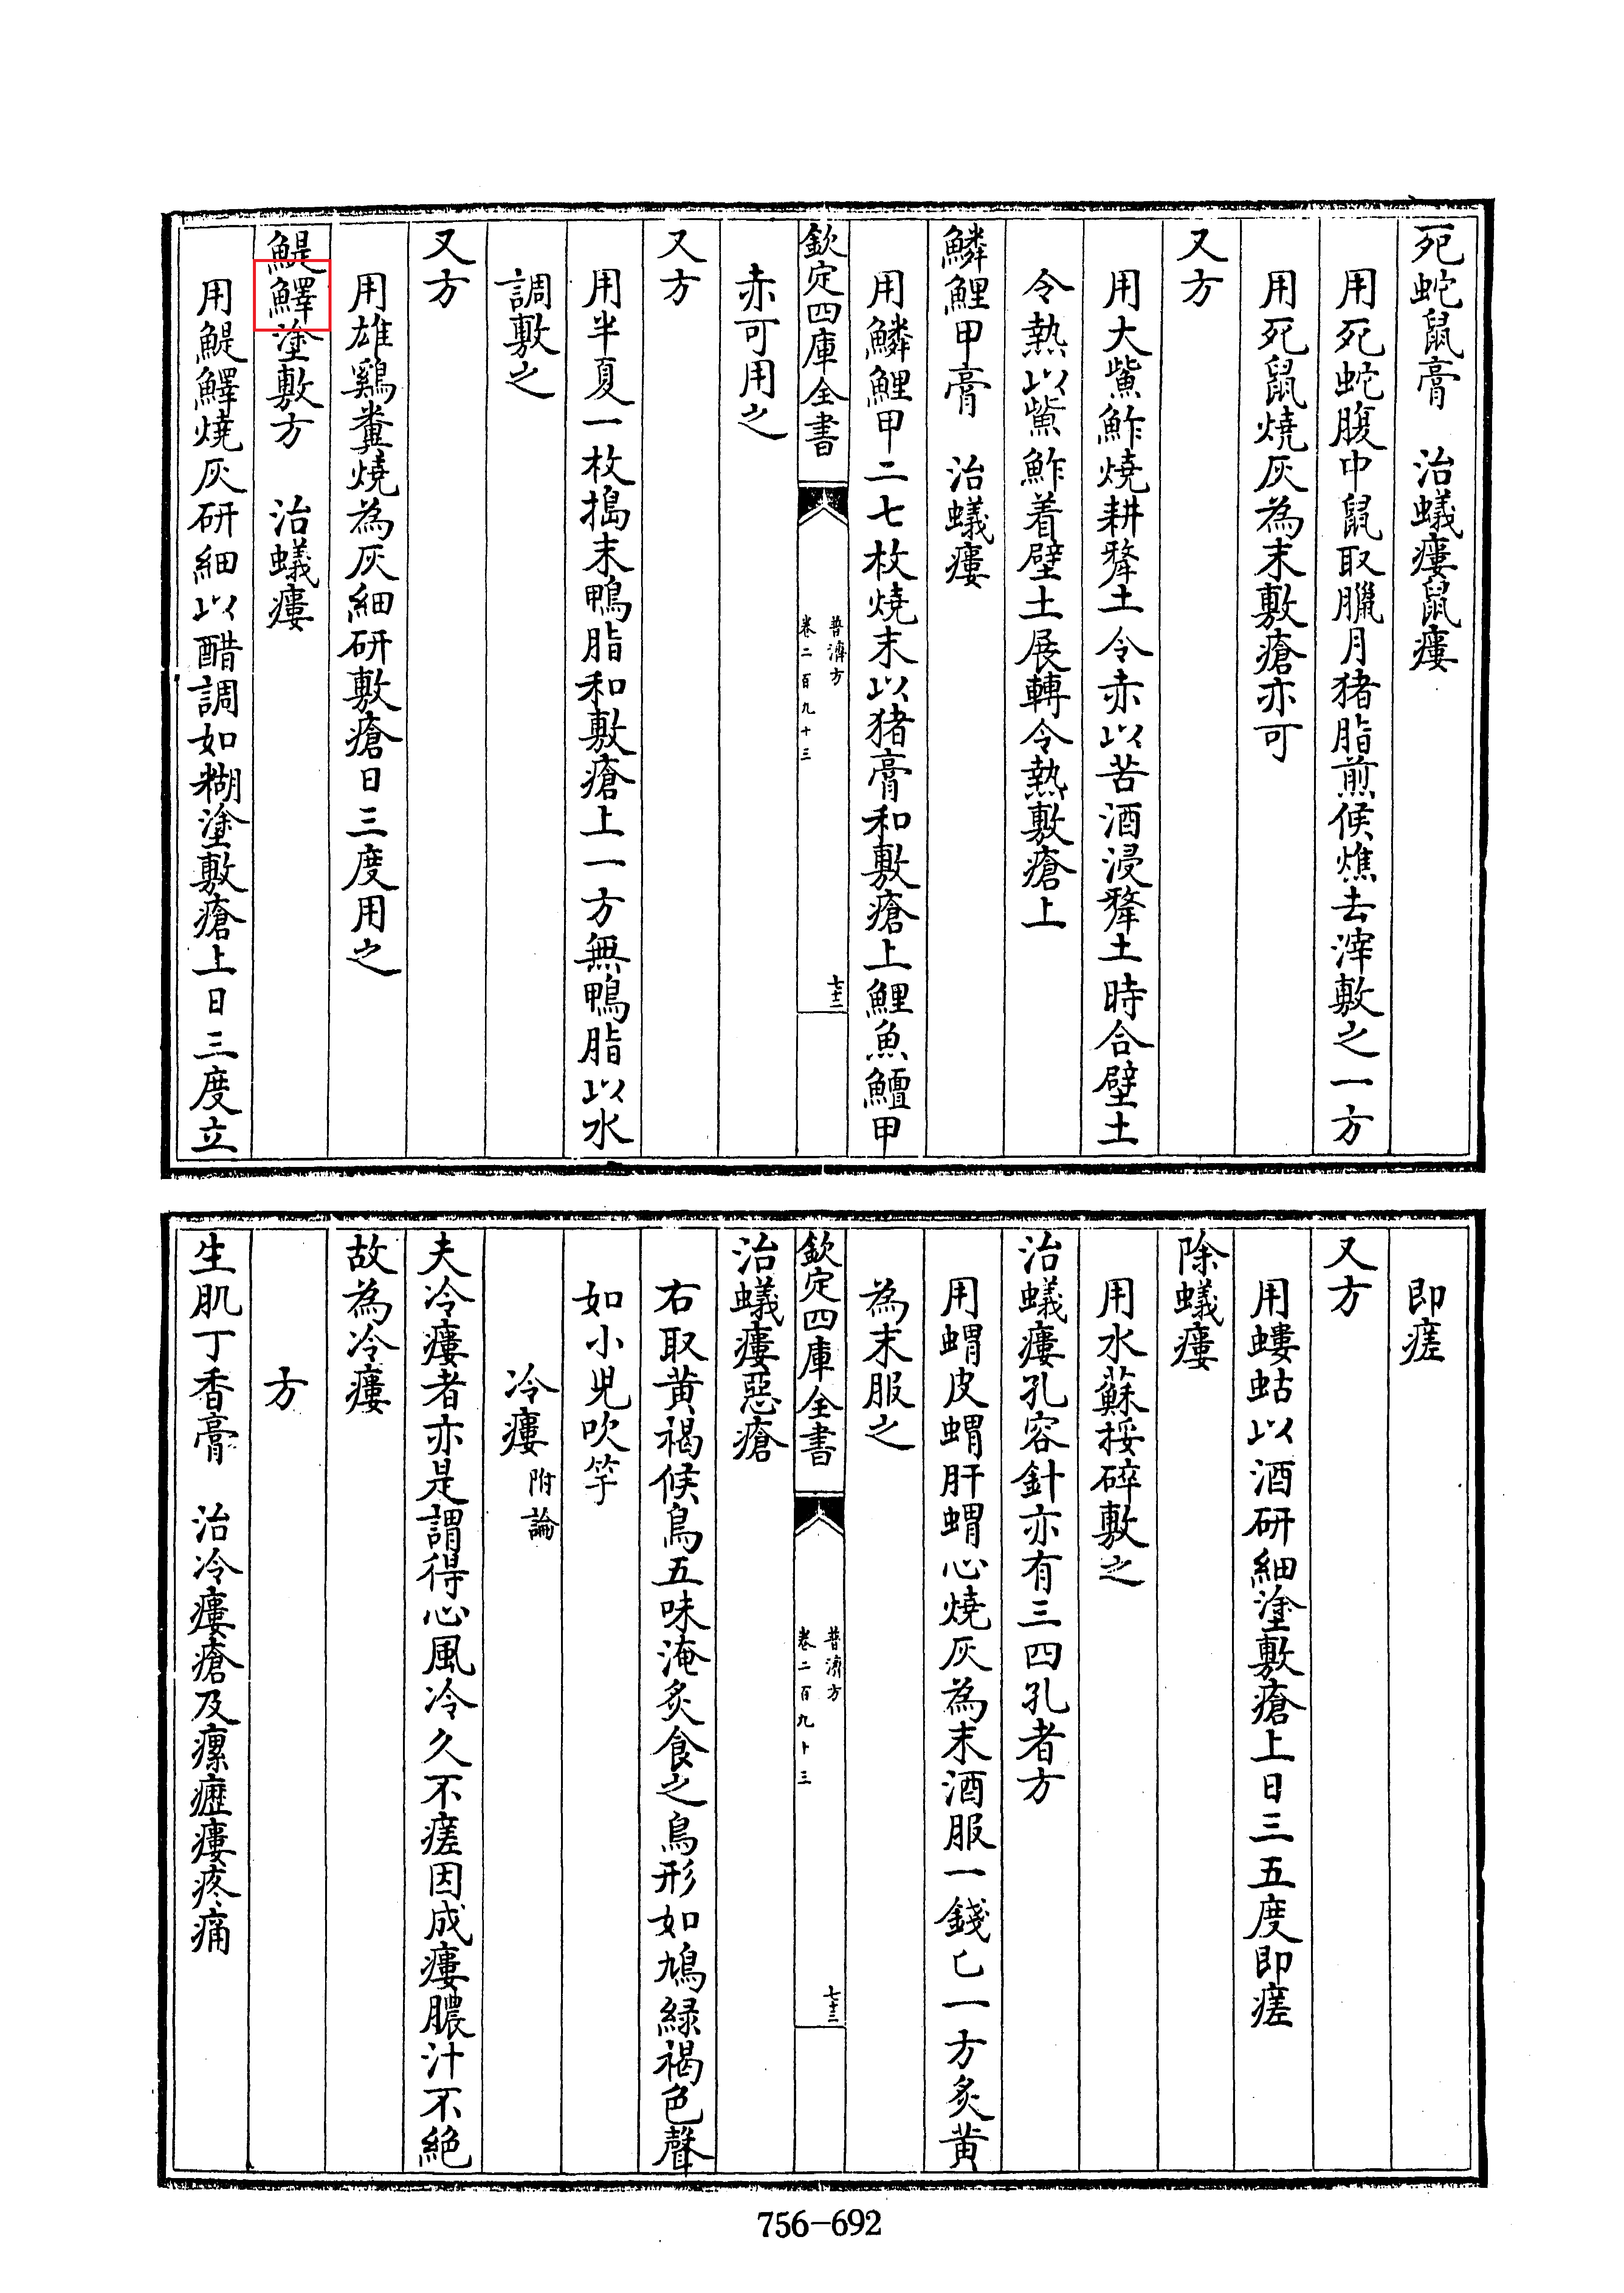 死蛇鼠膏　治蟻瘻鼠瘻
用死蛇腹中鼠取臘月猪脂煎候燋去滓敷之一方
用死鼠燒灰為末敷瘡亦可
又方
用大鮆鮓燒耕犂土令赤以苦酒浸犂土時合壁土
令熱以鮆鮓着壁土展轉令熱敷瘡上
鱗鯉甲膏　治蟻瘻
用鱗鯉甲二七枚燒末以猪膏和敷瘡上鯉魚鱣甲
欽定四庫全書
普濟方
卷二百九十三
七十二
赤可用之
又方
用半夏一枚搗末鴨脂和敷瘡上一方無鴨脂以水
調敷之
又方
用雄鷄糞燒為灰細研敷瘡日三度用之
鯷⿰魚睪塗敷方　治蟻瘻
用鯷⿰魚睪燒灰研細以醋調如糊塗敷瘡上日三度立
即瘥
又方
用螻蛄以酒研細塗敷瘡上日三五度即瘥
除蟻瘻
用水蘇挼碎敷之
治蟻瘻孔容針亦有三四孔者方
用蝟皮蝟肝蝟心燒灰為末酒服一錢匕一方炙黄
為末服之
欽定四庫全書
普濟方
卷二百九十三
七十三
治蟻瘻惡瘡
右取黄褐候鳥五味淹炙食之鳥形如鳩緑褐色聲
如小兒吹竽
冷瘻附論
夫冷瘻者亦是謂得心風冷久不瘥因成瘻膿汁不絶
故為冷瘻
方
生肌丁香膏　治冷瘻瘡及瘰癧瘻疼痛
756-692